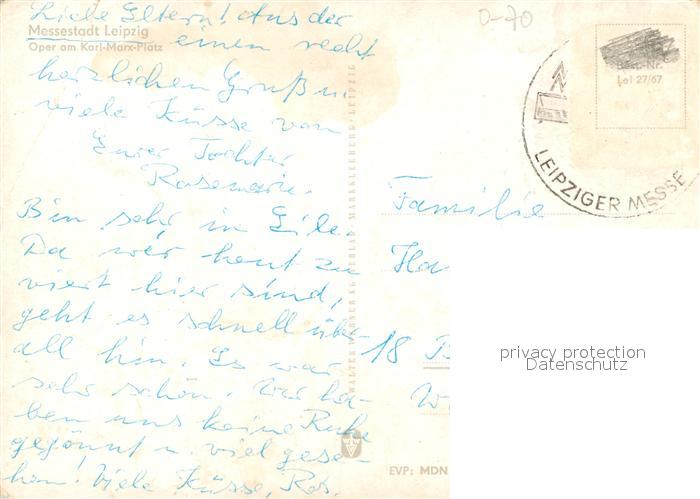 Liebe Eltern! Aus der
Messestadt Leipzig
Oper am Karl-Marx-Platz
einen recht
herzlichen Gruß u.
viele Küsse von
Eurer Tochter
Rosemarie.
Bin sehr in Eile.
Da wir heut zu
viert hier sind,
geht es schnell über-
all hin. Es war
sehr schön. Wir ha-
ben uns keine Ruhe
gegönnt u. viel gese-
hen! Viele Küsse, Ros.
WALTER WERNER KG VERLAG · MARKKLEEBERG · LEIPZIG
0-70
Best.-Nr.
Lei 27/67
LEIPZIGER MESSE
Familie
Ha
18 B
W
privacy protection
Datenschutz
EVP: MDN